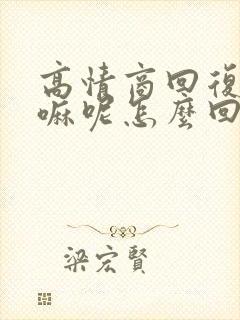 高情商回復
嘛呢怎麼回
梁宏賢